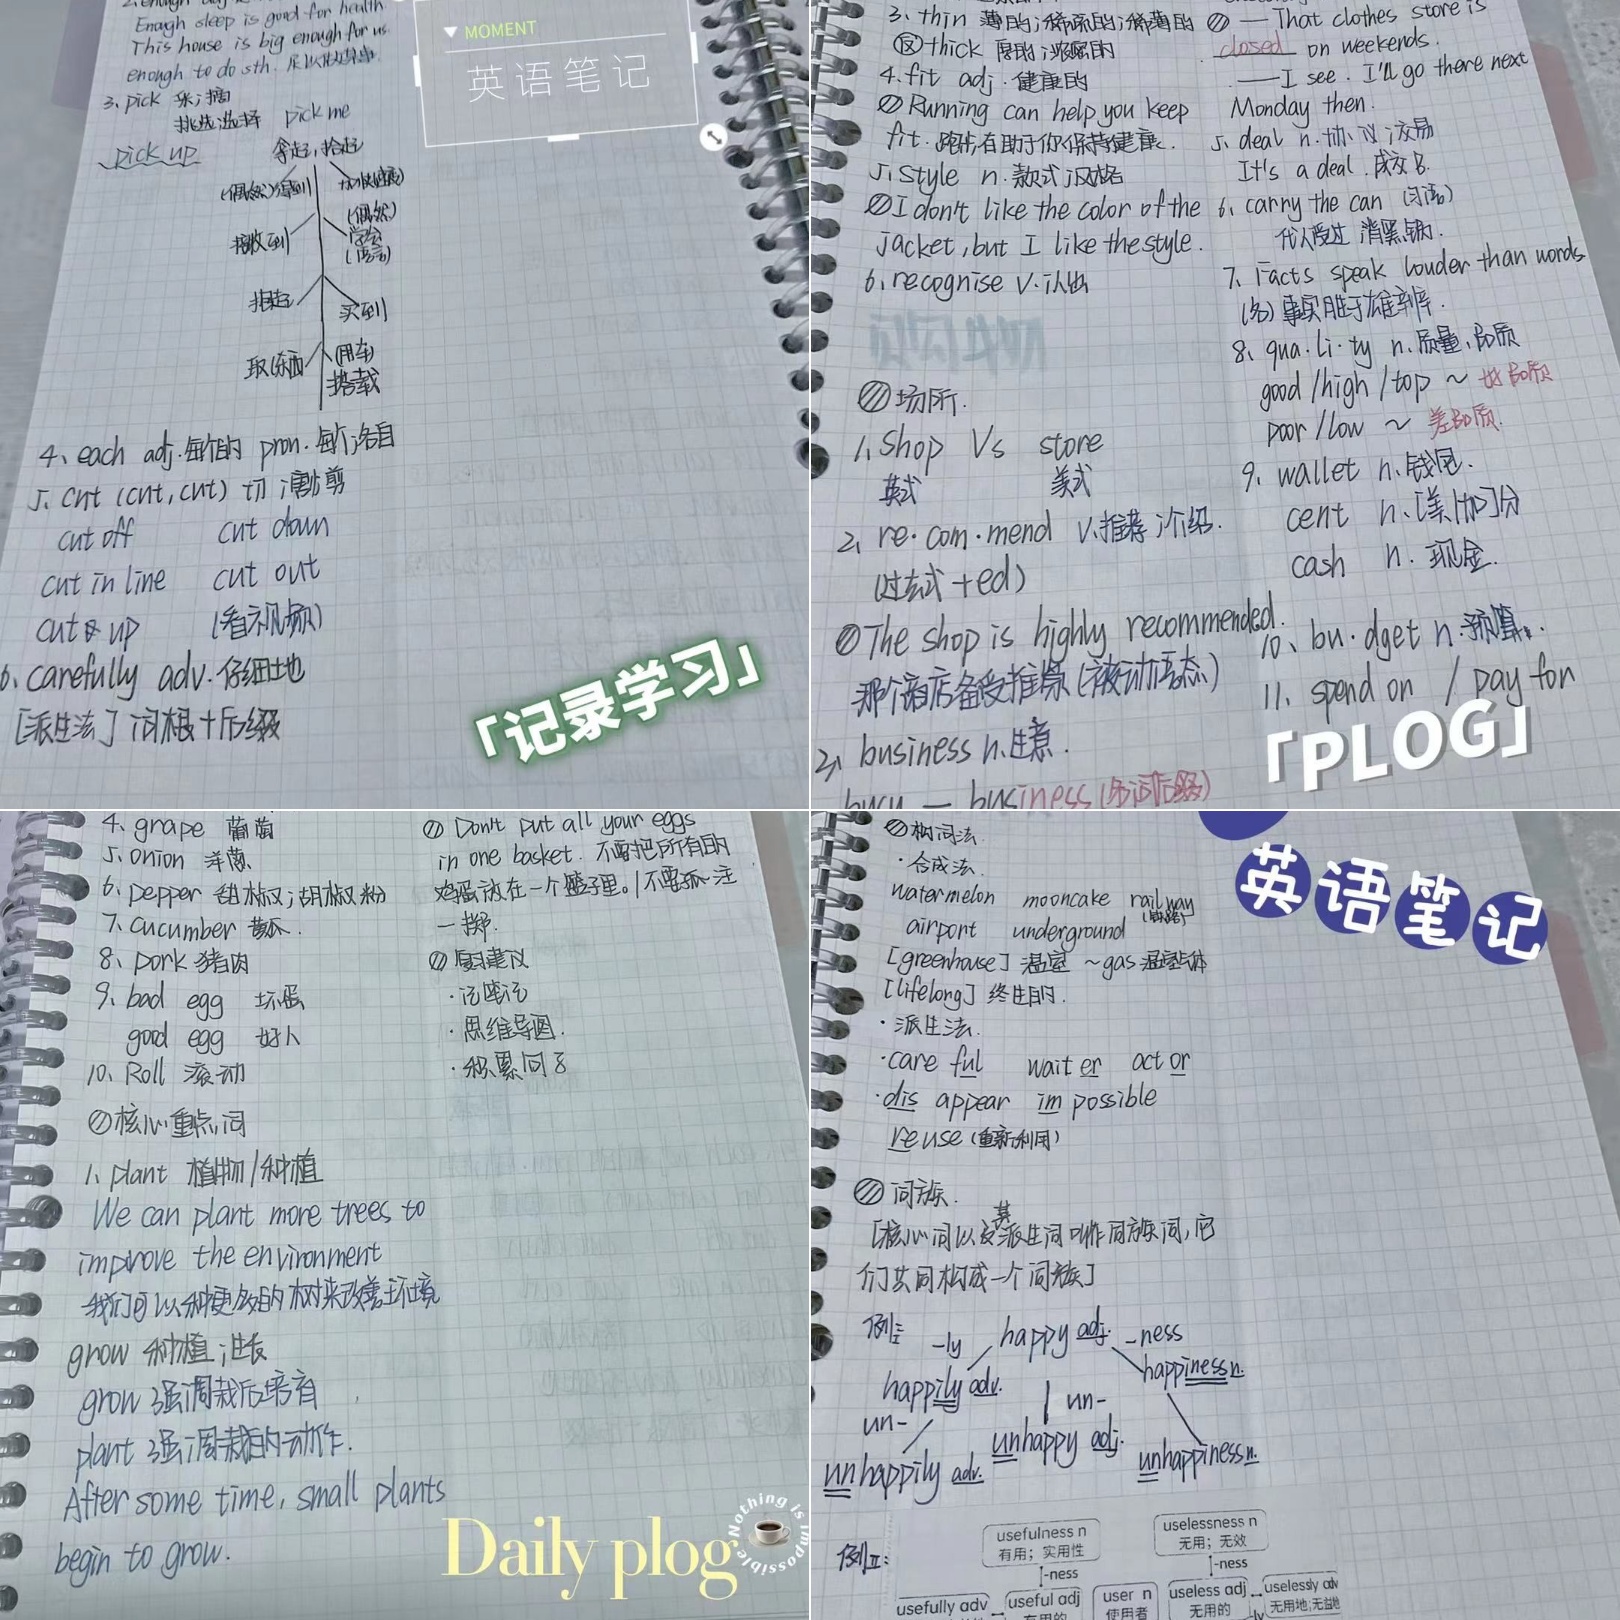 Enough sleep is good for health
This house is big enough for us.
enough to do sth. 足以做某事.
3、pick 采;摘
挑选;选择 pick me
pick up 拿起,捡起
接收到
(偶然)
学会
(语言)
买到
取(东西)
(用车)
搭载
4、each adj.每个的 pron.每个;各自
5、cut (cut, cut) 切;割;剪
cut off cut down
cut in line cut out
cut up (看视频)
6、carefully adv.仔细地
[派生法] 词根+后缀
MOMENT
英语笔记
「记录学习」
3、thin 薄的;稀疏的;稀薄的
反 thick 厚的;浓密的
4、fit adj.健康的
Running can help you keep
fit. 跑步有助于你保持健康.
5、style n.款式;风格
I don't like the color of the
jacket, but I like the style.
6、recognise v.认出
场所.
1、shop Vs store
英式 美式
2、re·com·mend v.推荐;介绍.
(过去式+ed)
The shop is highly recommended.
那个商店备受推崇(被动语态)
business n.生意.
busy — business (名词后缀)
— That clothes store is
closed on weekends.
— I see. I'll go there next
Monday then.
5、deal n.协议;交易
It's a deal. 成交了.
6、carry the can (习语)
代人受过
7、Facts speak louder than words
事实胜于雄辩.
8、qua·li·ty n.质量、品质
good/high/top ~ 好品质
poor/low ~ 差品质.
9、wallet n.钱包.
cent n.[美/加]分
cash n. 现金.
10、bu·dget n.预算.
11、spend on / pay for
「PLOG」
4、grape 葡萄
5、onion 洋葱
6、pepper 甜椒;胡椒粉
7、cucumber 黄瓜.
8、pork 猪肉
9、bad egg 坏蛋
good egg 好人
10、Roll 滚动
核心重点词
1、plant 植物/种植
We can plant more trees to
improve the environment
我们可以种更多的树来改善环境
grow 种植;生长
grow 强调栽后培育
plant 强调栽的动作.
After some time, small plants
begin to grow.
Don't put all your eggs
in one basket. 不要把所有的
鸡蛋放在一个篮子里。/不要孤注
一掷.
复习建议
·思维导图.
·积累词
Daily plog
Nothing is impossible
构词法.
·合成法.
watermelon mooncake railway
(铁路)
airport underground
[greenhouse] 温室 ~gas 温室气体
[lifelong] 终生的.
·派生法.
·careful waiter actor
·disappear impossible
reuse (重新利用)
词族.
[核心词以及其派生词叫作同族词,它
们共同构成一个词族]
例I: -ly happy adj. -ness
happily adv. happiness n.
un- un-
unhappily adv. unhappy adj. unhappiness n.
例II:
usefulness n
有用;实用性
uselessness n
无用;无效
-ness
-ness
usefully adv
useful adj
有用的
user n
使用者
useless adj
无用的
uselessly adv
无用地;无益地
-ly
英语笔记